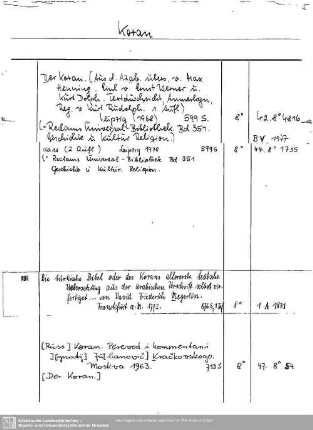 Koran
Der Koran. (Aus d. Arab. übers. v. Max
Henning. Einl. v. Ernst Werner u.
Kurt Rudolph. Textdurchsicht, Anmerkgn,
Reg. v. Kurt Rudolph. 1. Aufl.)
Leipzig (1968) 599 S. 8° 42. 8° 4816
(= Reclams Universal-Bibliothek. Bd 351.
Geschichte u. Kultur. Religion.)
dass. (2. Aufl.) Leipzig 1970 599 S 8° 44. 8° 1735
(= Reclams Universal-Bibliothek Bd 351
Geschichte u. Kultur. Religion.
Die türkische Bibel oder des Korans allererste teutsche
Uebersetzung aus der arabischen Urschrift selbst ver-
fertiget ... von David Friederich Megerlin.
Frankfurt a. M. 1772. 8° 1 A 1831
[Russ.] Koran. Perevod i kommentarii
I[gnatij] Ju[lianovič] Kračkovskogo.
Moskva 1963. 713 S 8° 47. 8° 54
[Der Koran.]